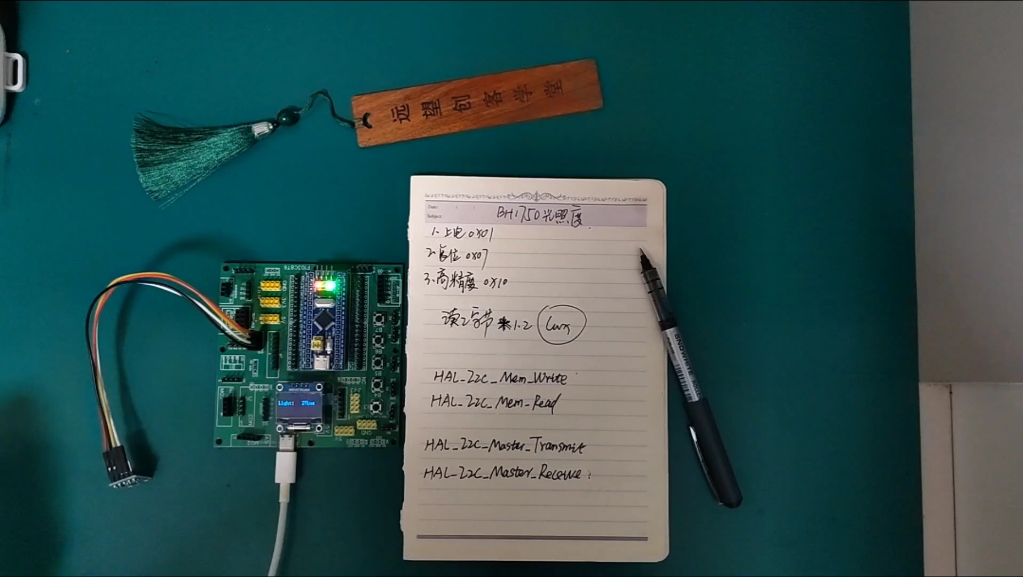 远望创客学堂
BH1750光照度
1. 上电 0x01
2. 复位 0x07
3. 高精度 0x10
读2字节 1.2 Lux
HAL_I2C_Mem_Write
HAL_I2C_Mem_Read
HAL_I2C_Master_Transmit
HAL_I2C_Master_Receive
F103C8T6
Light: